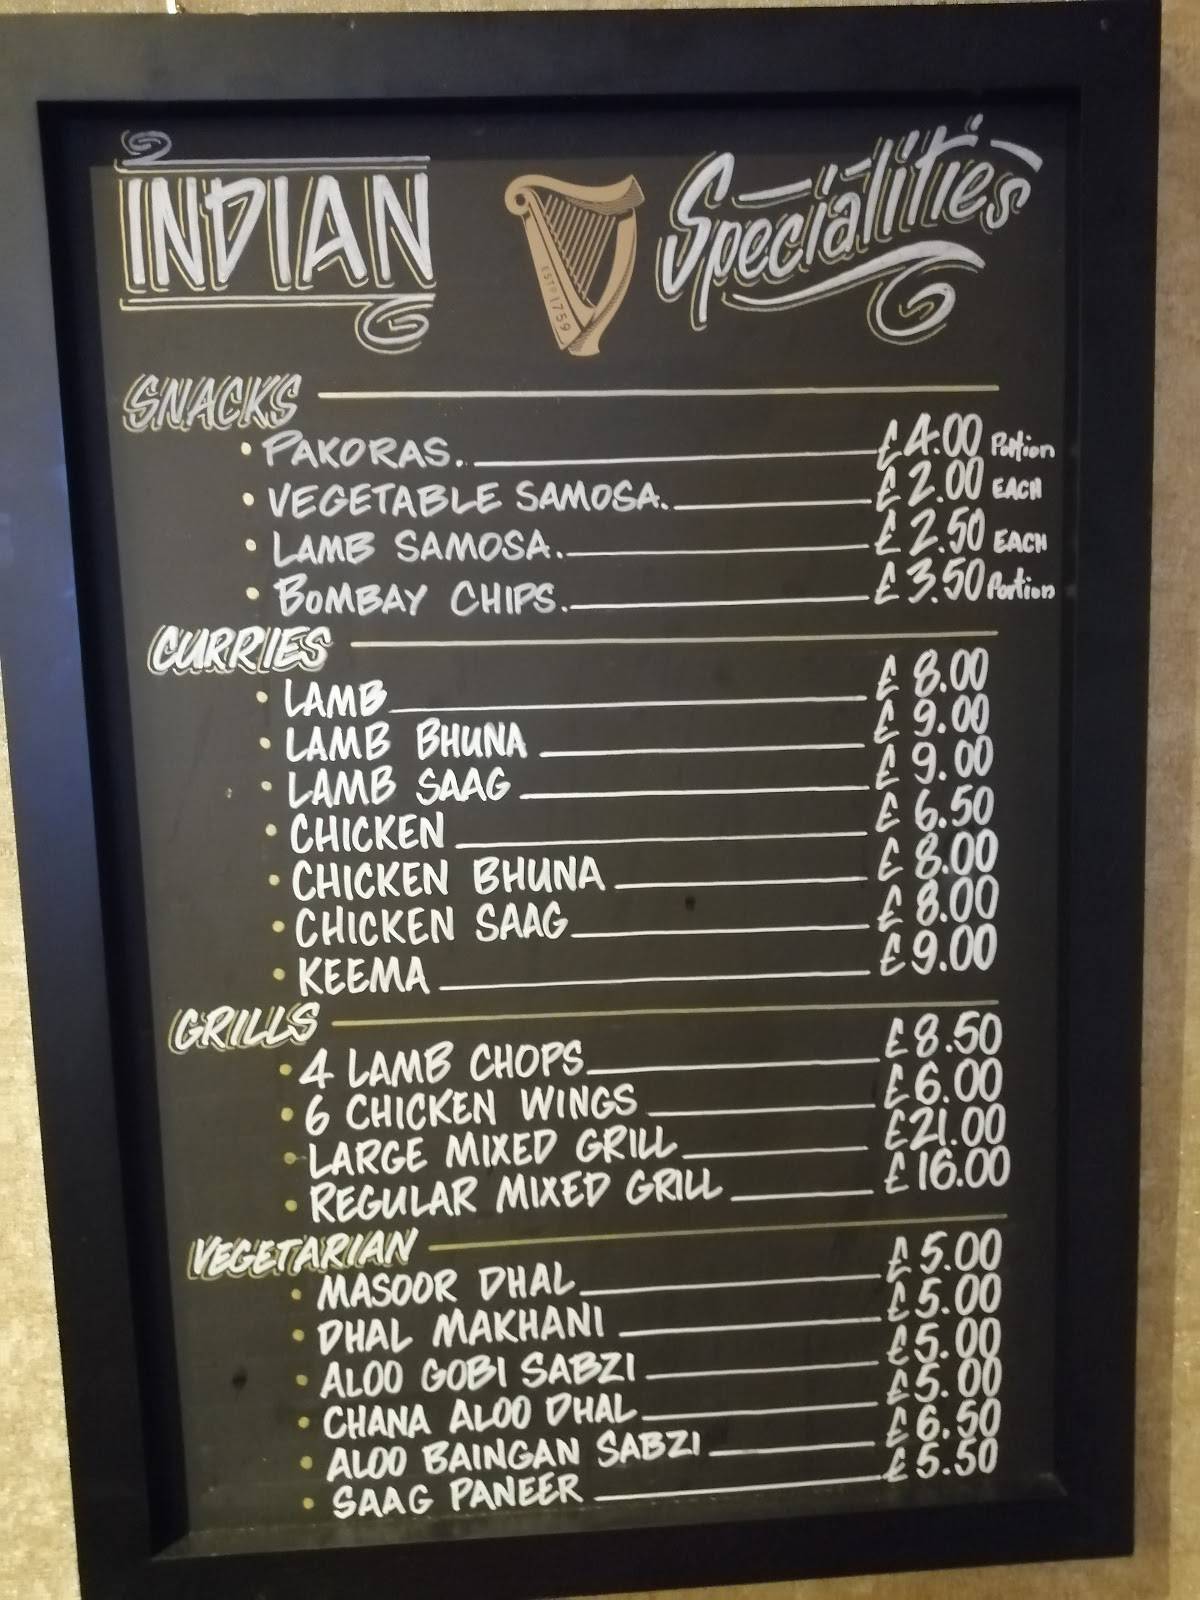 INDIAN Specialities
ESTD 1759
SNACKS
• PAKORAS. £4.00 Portion
• VEGETABLE SAMOSA. £2.00 EACH
• LAMB SAMOSA. £2.50 EACH
• BOMBAY CHIPS. £3.50 Portion
CURRIES
• LAMB £8.00
• LAMB BHUNA £9.00
• LAMB SAAG £9.00
• CHICKEN £6.50
• CHICKEN BHUNA £8.00
• CHICKEN SAAG £8.00
• KEEMA £9.00
GRILLS
• 4 LAMB CHOPS £8.50
• 6 CHICKEN WINGS £6.00
• LARGE MIXED GRILL £21.00
• REGULAR MIXED GRILL £16.00
VEGETARIAN
• MASOOR DHAL £5.00
• DHAL MAKHANI £5.00
• ALOO GOBI SABZI £5.00
• CHANA ALOO DHAL £5.00
• ALOO BAINGAN SABZI £6.50
• SAAG PANEER £5.50